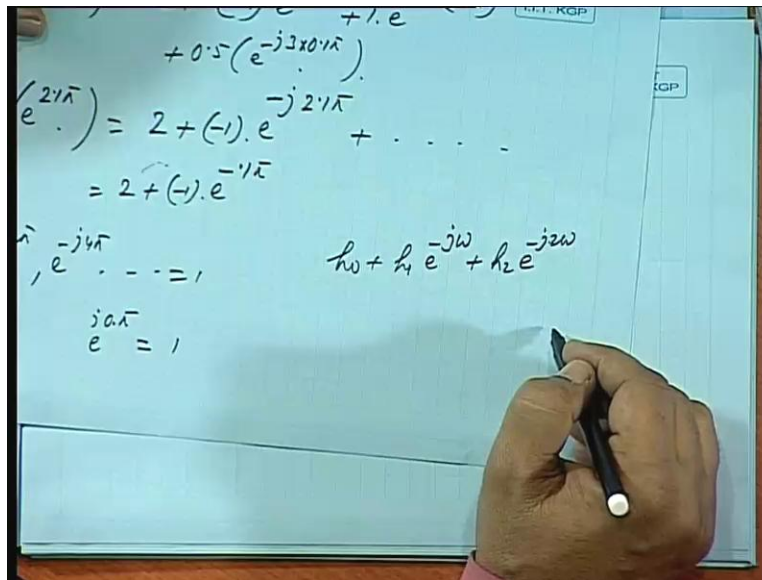 +1.e
I.I.T. KGP
+ 0.5(e^{-j3×0.1π}).
KGP
(e^{2.1π}) = 2 + (-1).e^{-j2.1π} + . . . .
= 2 + (-1).e^{-.1π}
π, e^{-j4π} . . . = 1
h₀ + h₁ e^{-jω} + h₂ e^{-j2ω}
e^{j0.π} = 1